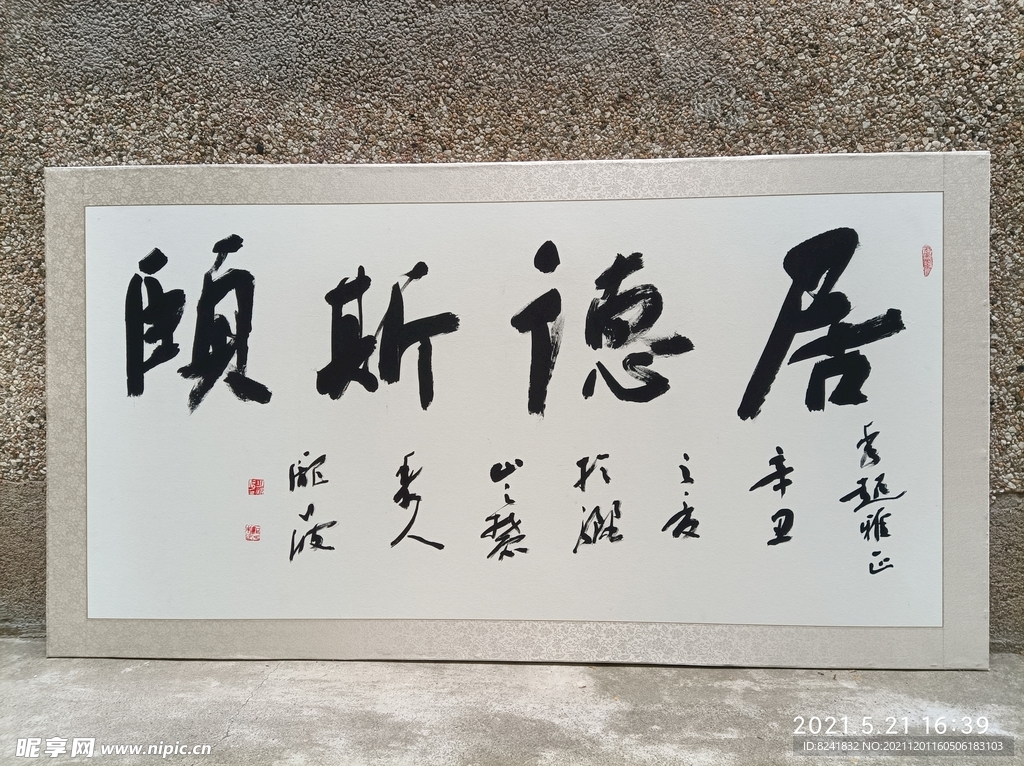 居德斯頤
秀超雅正
辛丑
之夏
於驪
山之麓
秦人
龐波
2021.5.21 16:39
昵享网 www.nipic.cn
ID:8241832 NO:20211201160506183103